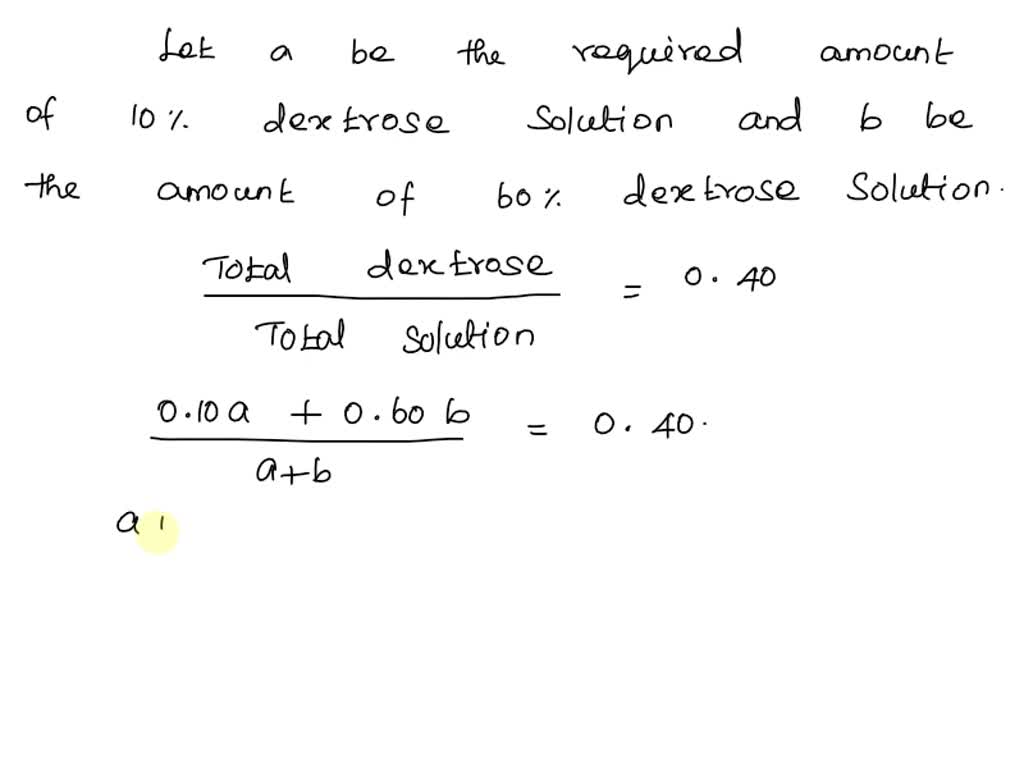 Let a be the required amount
of 10% dextrose solution and b be
the amount of 60% dextrose solution.
Total dextrose
Total solution
= 0.40
0.10a + 0.60 b
a+b
= 0.40.
a